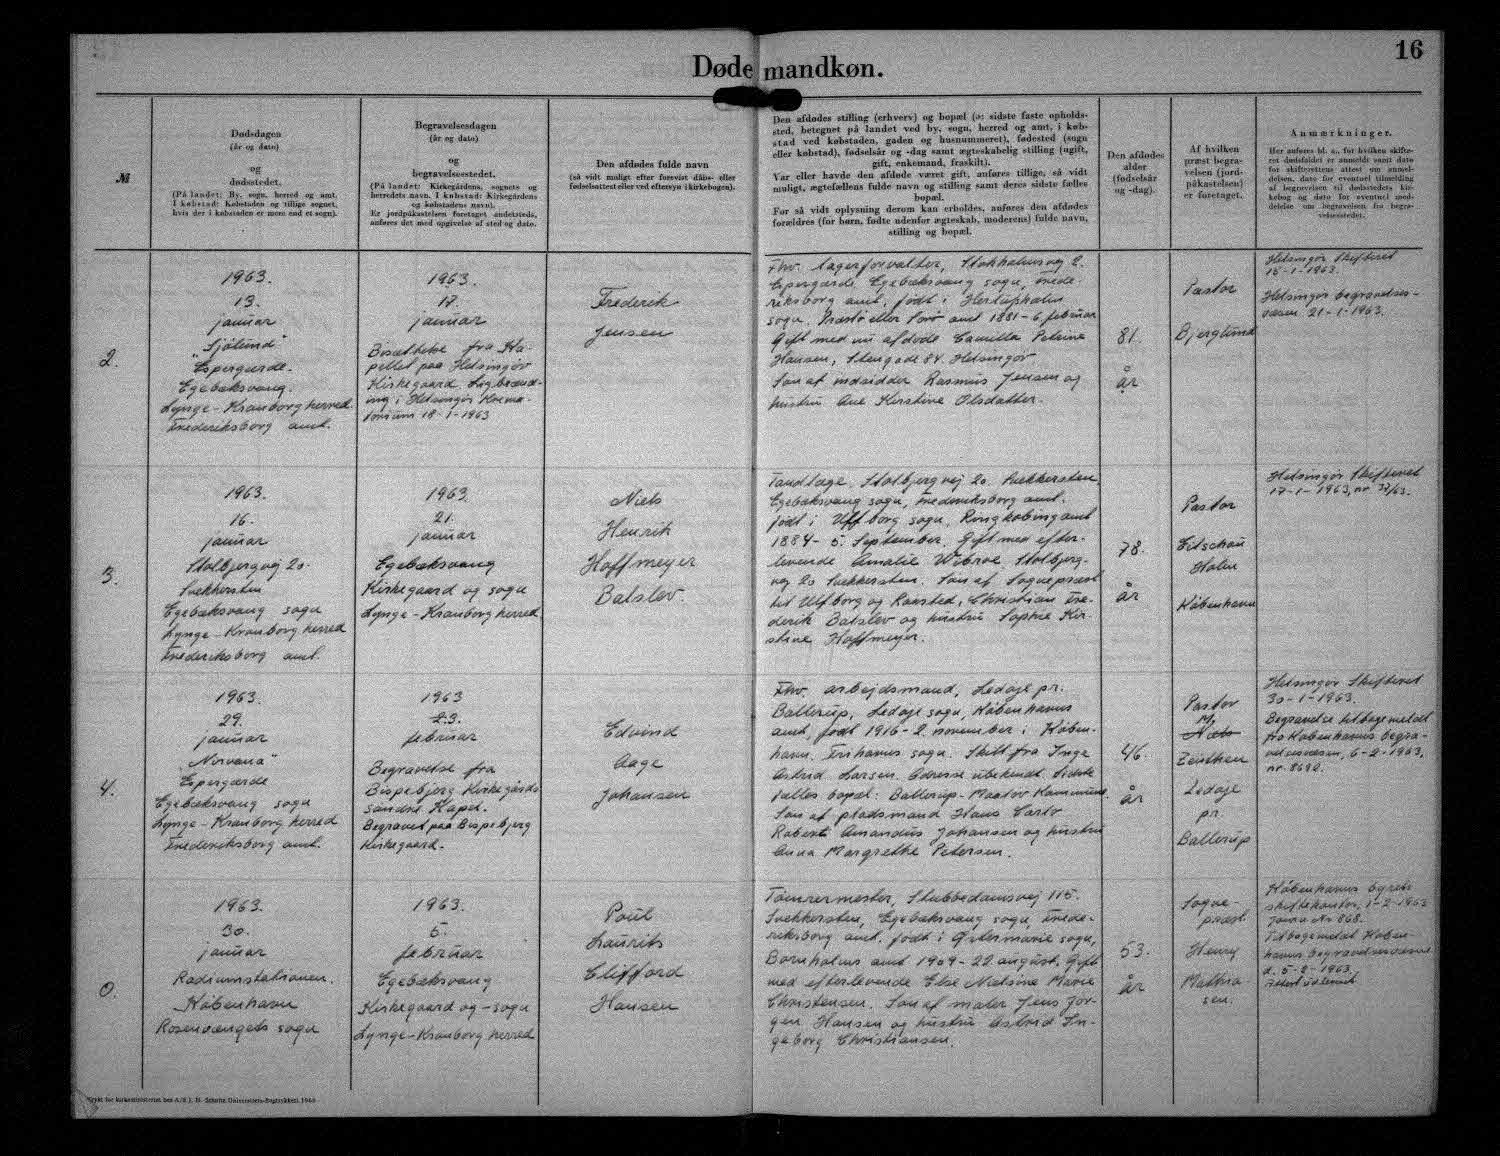 16
Døde mandkøn.
№
Dødsdagen
(år og dato)
og
dødsstedet.
(På landet: By, sogn, herred og amt.
I købstad: Købstaden og tillige sognet,
hvis der i købstaden er mere end et sogn).
Begravelsesdagen
(år og dato)
og
begravelsesstedet.
(På landet: Kirkegårdens, sognets og
herredets navn. I købstad: Kirkegårdens
og købstadens navn).
Er jordpåkastelsen foretaget andetsteds,
anføres det med opgivelse af sted og dato.
Den afdødes fulde navn
(så vidt muligt efter forevist dåbs- eller
fødselsattest eller ved eftersyn i kirkebogen).
Den afdødes stilling (erhverv) og bopæl (ɔ: sidste faste opholds-
sted, betegnet på landet ved by, sogn, herred og amt, i køb-
stad ved købstaden, gaden og husnummeret), fødested (sogn
eller købstad), fødselsår og -dag samt ægteskabelig stilling (ugift,
gift, enkemand, fraskilt).
Var eller havde den afdøde været gift, anføres tillige, så vidt
muligt, ægtefællens fulde navn og stilling samt deres sidste fælles
bopæl.
For så vidt oplysning derom kan erholdes, anføres den afdødes
forældres (for børn, fødte udenfor ægteskab, moderens) fulde navn,
stilling og bopæl.
Den afdødes
alder
(fødselsår
og -dag).
Af hvilken
præst begra-
velsen (jord-
påkastelsen)
er foretaget.
Anmærkninger.
Her anføres bl. a., for hvilken skifte-
ret dødsfaldet er anmeldt samt dato
for skifterettens attest om anmel-
delsen, dato for eventuel tilmelding
af begravelsen til dødsstedets kir-
kebog og dato for eventuel med-
delelse om begravelsen fra begra-
velsesstedet.
2.
1963.
13.
januar
"Sjølund"
Espergærde.
Egebæksvang.
Lynge-Kronborg herred.
Frederiksborg amt.
1963.
17.
januar
Bisættelse fra Ka-
pellet paa Helsingør
Kirkegaard. Ligbrænd-
ing i Helsingør Krema-
torium 18-1-1963
Frederik
Jensen
Fhv. lagerforvalter, Stokholmsvej 2.
Espergærde. Egebæksvang sogn, Frede-
riksborg amt, født i Herlufsholm
sogn, Præstø eller Sorø amt 1881-6. februar
Gift med nu afdøde Camilla Petrine
Hansen, Stengade 84. Helsingør
Søn af indsidder Rasmus Jensen og
hustru Ane Kirstine Olsdatter.
81.
år
Pastor
Bjerglund
Helsingør Skifteret
15-1-1963.
Helsingør begravelses-
væsen 21-1-1963.
3.
1963.
16.
januar
Stolbjergvej 20.
Snekkersten
Egebæksvang sogn
Lynge-Kronborg herred
Frederiksborg amt.
1963.
21.
januar
Egebæksvang
Kirkegaard og sogn
Lynge-Kronborg herred
Niels
Henrik
Hoffmeyer
Balslev
Tandlæge, Stolbjergvej 20 Snekkersten
Egebæksvang sogn, Frederiksborg amt.
født i Ulfborg sogn, Ringkøbing amt
1884-5. September. Gift med efter-
levende Amalie Wibroe Stolbjerg-
vej 20 Snekkersten. Søn af Sognepræst
til Ulfborg og Raasted, Christian Fre-
derik Balslev og hustru Sophie Kir-
stine Hoffmeyer.
78.
år
Pastor
Holm
København
Helsingør Skifteret
17-1-1963, nr 37/63.
4.
1963.
29.
januar
"Nirvana"
Espergærde
Egebæksvang sogn
Lynge-Kronborg herred
Frederiksborg amt.
1963
23.
februar
Begravelse fra
Bispebjerg Kirkegårds
søndre Kapel.
Begravet paa Bispebjerg
Kirkegaard.
Edvind
Aage
Johansen
Fhv. arbejdsmand, Ledøje pr.
Ballerup, Ledøje sogn, Københavns
amt, født 1916-2. november i Køben-
havn. Frihavns sogn. Skilt fra Inge
Astrid Larsen. Adresse ubekendt. Sidste
fælles bopæl: Ballerup-Maaløv Kommune
Søn af pladsmand Hans Carlo
Robert Amandus Johansen og hustru
Anna Margrethe Petersen.
46.
år
Pastor
M.
Niels
Zeuthen
Ledøje
pr.
Ballerup
Helsingør Skifteret
30-1-1963.
Begravelse tilbagemeldt
fra Københavns begra-
velsesvæsen, 6-2-1963,
nr. 8690.
0.
1963.
30.
januar
Radiumstationen.
København
Rosenvængets sogn
1963.
5.
februar
Egebæksvang
Kirkegaard og -sogn
Lynge-Kronborg herred
Poul
Laurits
Clifford
Hansen
Tømrermester, Stubbedamsvej 115.
Snekkersten, Egebæksvang sogn, Frede-
riksborg amt. født i Østermarie sogn,
Bornholms amt 1909-22 august. Gift
med efterlevende Else Nielsine Marie
Christensen. Søn af maler Jens Jør-
gen Hansen og hustru Astrid In-
geborg Christiansen.
53.
år
Sogne-
præst
Henry
Mathia-
sen.
Københavns byrets
skiftekontor, 1-2-1963
Journ Nr 868.
Tilbagemeldt Køben-
havns begravelsesvæsen
d. 5-2-1963.
Attest udstedt
Trykt for kirkeministeriet hos A/S J. H. Schultz Universitets-Bogtrykkeri.